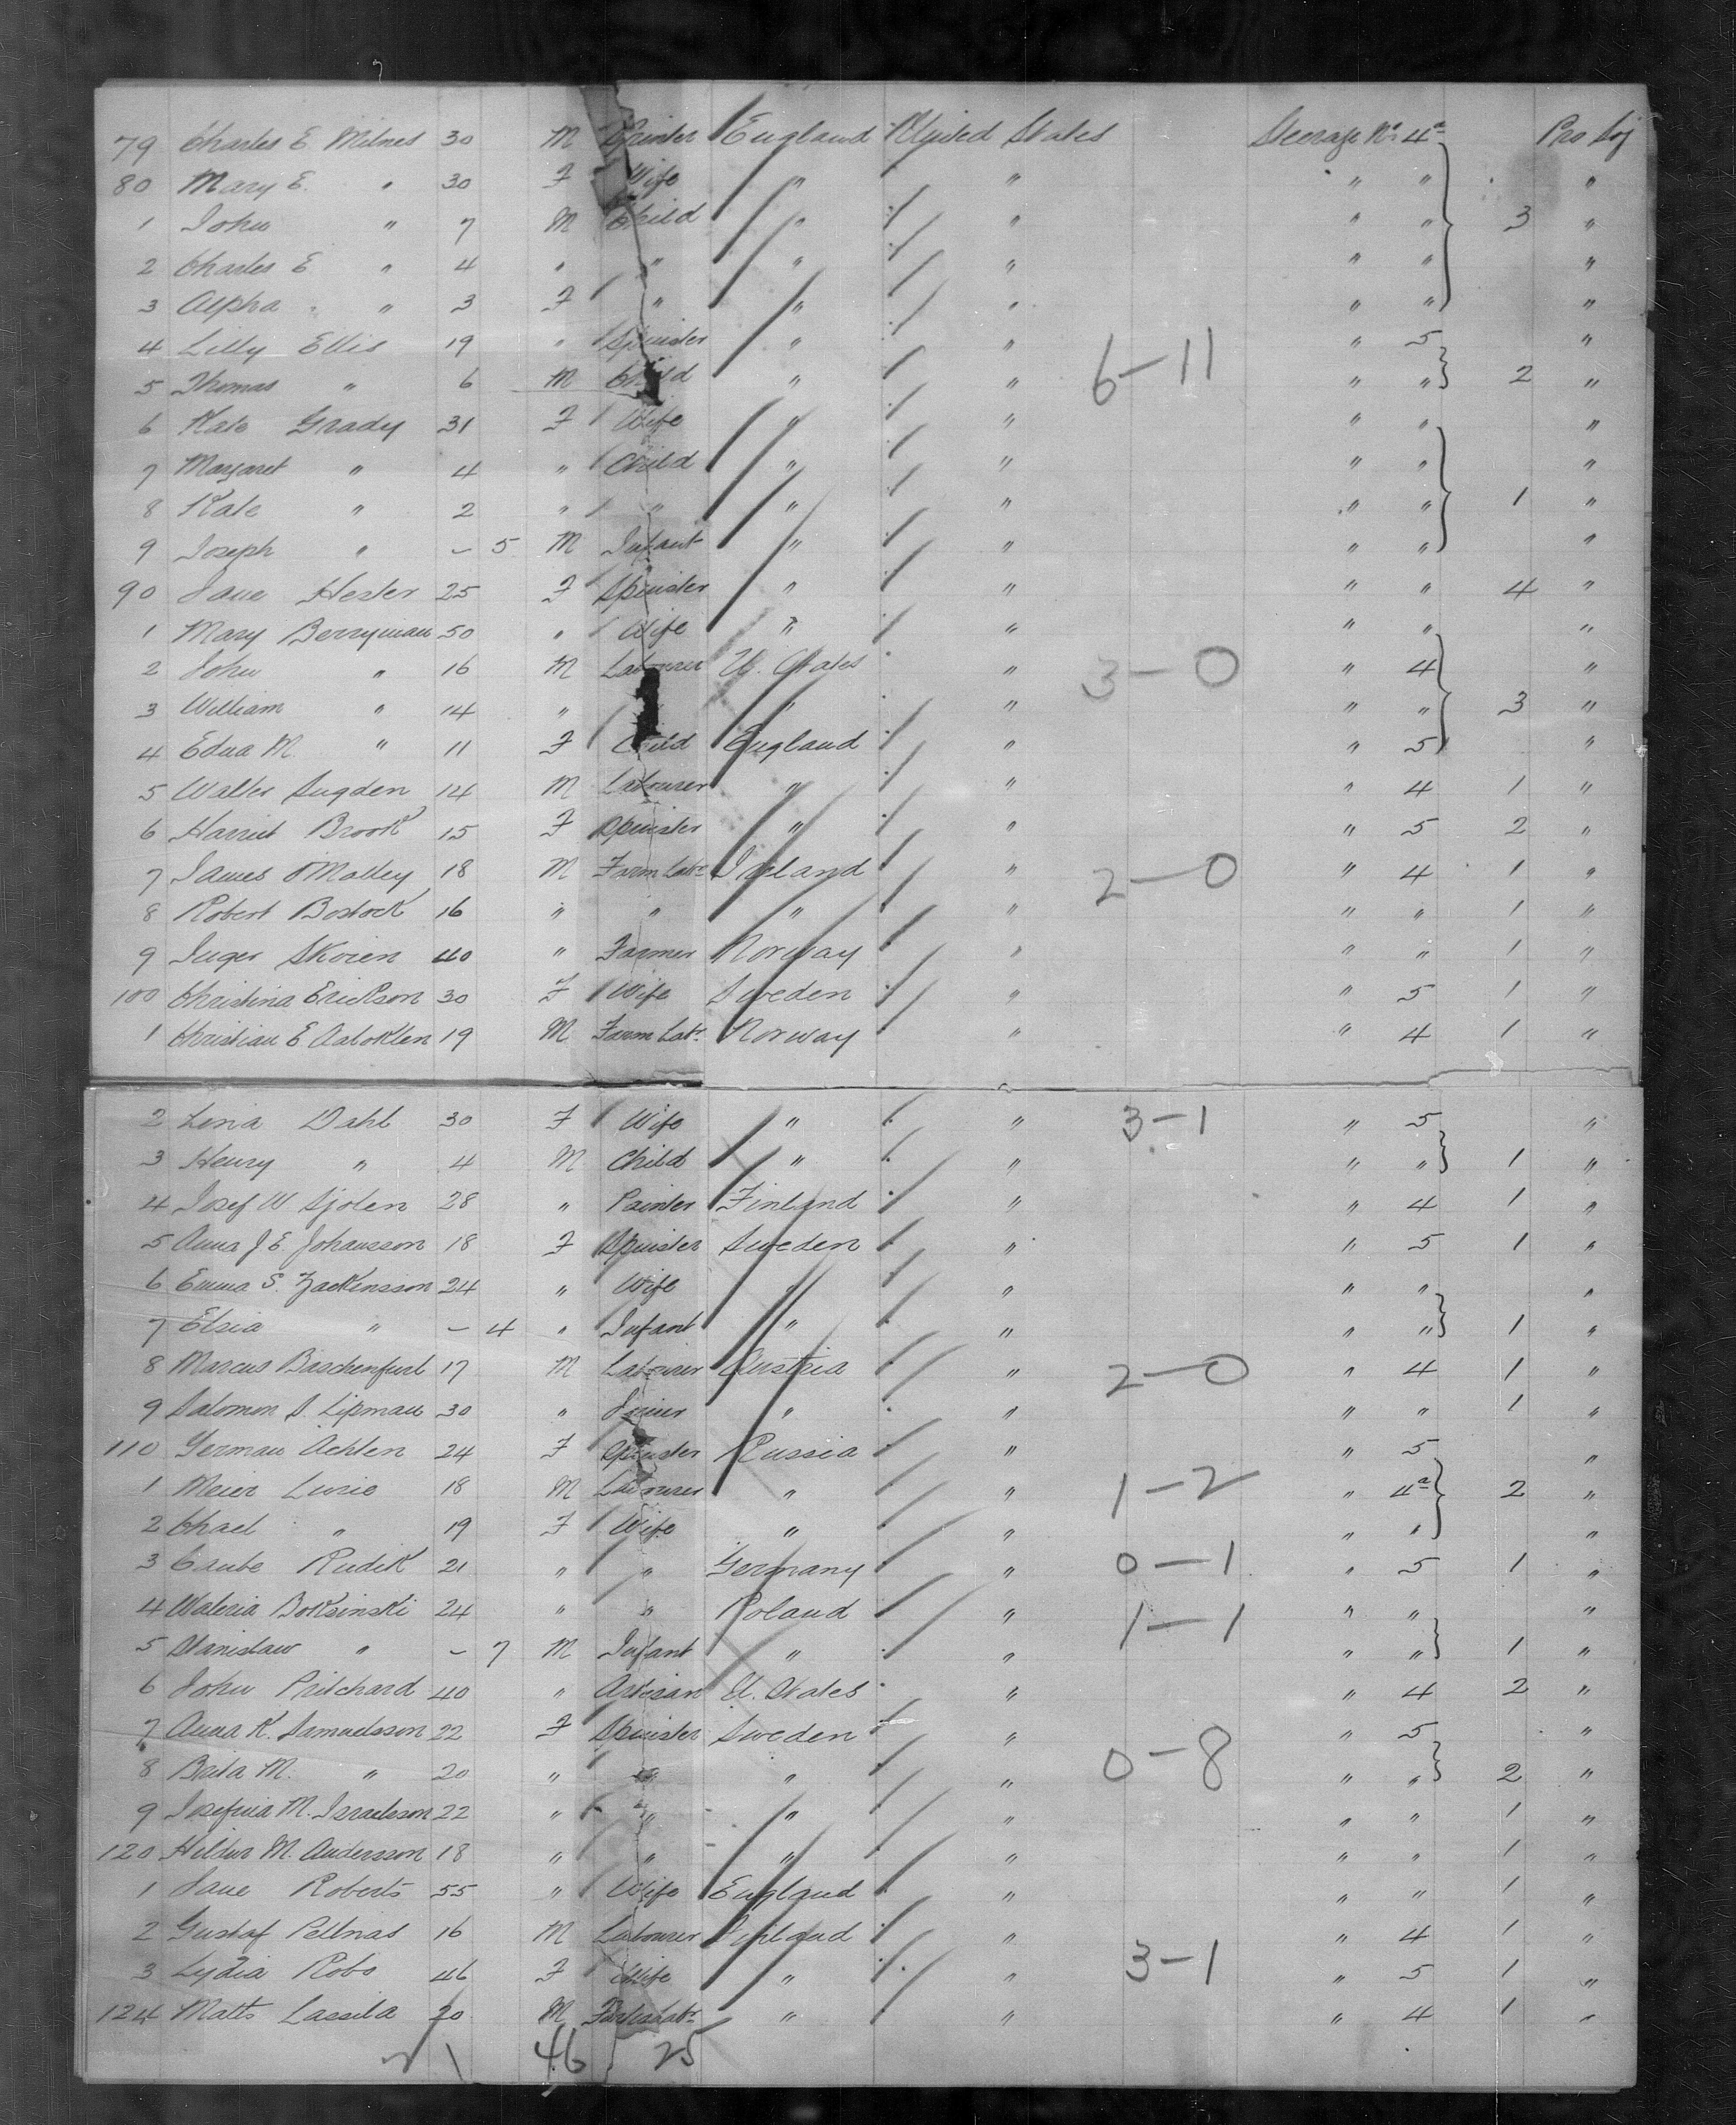 79 Charles E Milnes 30 M Printer England United States Steerage No 4a Pro Soj
80 Mary E. " 30 F Wife " " " " "
1 John " 7 M Child " " " " 3 "
2 Charles E " 4 " " " " " " "
3 Alpha " 3 F " " " " " "
4 Lilly Ellis 19 " Spinster " " " 5 "
5 Thomas " 6 M Child " " 6-11 " " 2 "
6 Kate Grady 31 F Wife " " " " "
7 Margaret " 4 " Child " " " " "
8 Kate " 2 " " " " " " 1 "
9 Joseph " - 5 M Infant " " " " "
90 Jane Hester 25 F Spinster " " " " 4 "
1 Mary Berryman 50 " Wife " " " " "
2 John " 16 M Labourer U. States " 3-0 " 4 "
3 William " 14 " " " " " 3 "
4 Edna M. " 11 F Child England " " 5 "
5 Walter Sugden 14 M Labourer " " " 4 1 "
6 Harriet Brook 15 F Spinster " " " 5 2 "
7 James O'Malley 18 M Farm Labr Ireland " 2-0 " 4 1 "
8 Robert Bostock 16 " " " " " " 1 "
9 Inger Skoien 40 " Farmer Norway " " " 1 "
100 Christina Erickson 30 F Wife Sweden " " 5 1 "
1 Christian E 19 M Farm Labr Norway " " 4 1 "
2 Lena Dahl 30 F Wife " " 3-1 " 5 "
3 Henry " 4 M Child " " " " 1 "
4 Josef W Sjolen 28 " Painter Finland " " 4 1 "
5 Anna J E Johansson 18 F Spinster Sweden " " 5 1 "
6 Emma S. 24 " Wife " " " " "
7 Elsia " - 4 " Infant " " " " 1 "
8 Marcus 17 M Labourer Austria " 2-0 " 4 1 "
9 Salomon S. Lipman 30 " Joiner " " " " 1 "
110 German Achlen 24 F Spinster Russia " " 5 "
1 Meier Lurie 18 M Labourer " " 1-2 " 4a 2 "
2 Chael " 19 F Wife " " " " "
3 Rudik 21 " " Germany " 0-1 " 5 1 "
4 Waleria Boksinski 24 " " Poland " 1-1 " " "
5 Stanislaw " - 7 M Infant " " " " 1 "
6 John Pritchard 40 " Artisan U. States " " 4 2 "
7 Anna K. Samuelsson 22 F Spinster Sweden " " 5 "
8 Brita M. " 20 " " " " 0-8 " " 2 "
9 Josefina M. Israelsson 22 " " " " " " 1 "
120 Hildur M. Andersson 18 " " " " " " 1 "
1 Jane Roberts 55 " Wife England " " " 1 "
2 Gustaf Pellnas 16 M Labourer Finland " " 4 1 "
3 Lydia Robo 46 F Wife " " 3-1 " 5 1 "
124 Matts Lassila 20 M Farm Labr " " " 4 1 "
46 25